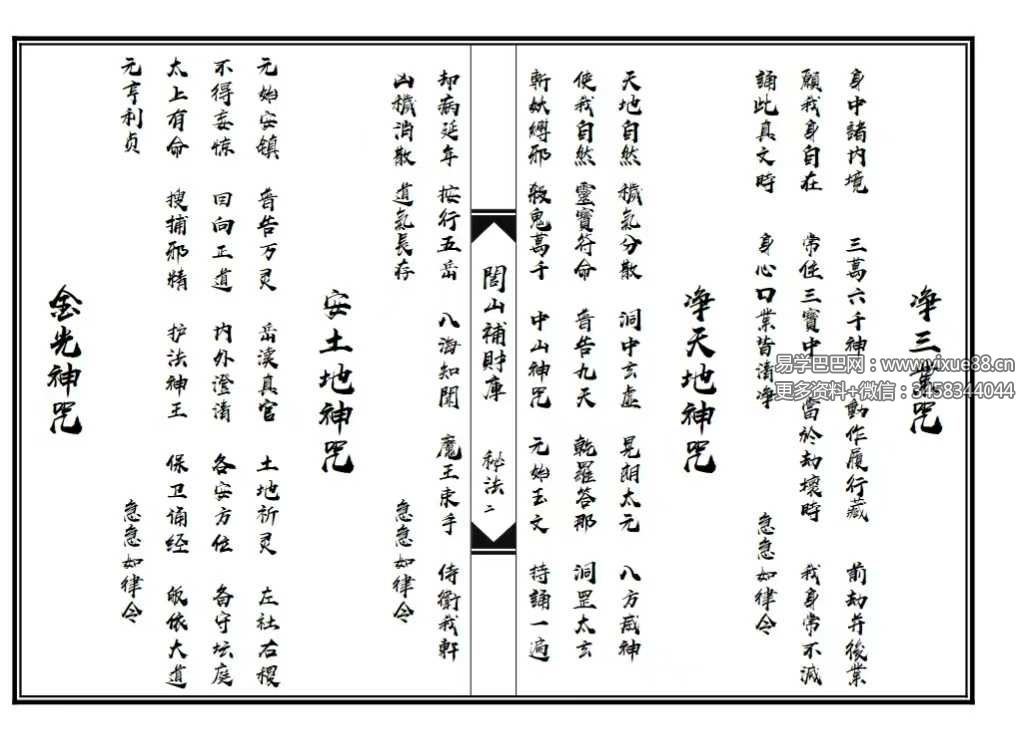 净三業咒
身中諸内境 三萬六千神 動作履行藏 前劫并後業
願我身自在 常住三寶中 當於劫壞時 我身常不滅
誦此真文時 身心口業皆清净 急急如律令
净天地神咒
天地自然 穢氣分散 洞中玄虚 晃朗太元 八方威神
使我自然 靈寶符命 普告九天 乾羅答那 洞罡太玄
斬妖縛邪 殺鬼萬千 中山神咒 元始玉文 持誦一遍
閭山補財庫 秘法二
却病延年 按行五岳 八海知聞 魔王束手 侍衛我軒
凶穢消散 道氣長存 急急如律令
安土地神咒
元始安镇 普告万灵 岳渎真官 土地祈灵 左社右稷
不得妄惊 回向正道 内外澄清 各安方位 备守坛庭
太上有命 搜捕邪精 护法神王 保卫诵经 皈依大道
元亨利贞 急急如律令
金光神咒
易学巴巴网：www.yixue88.cn
更多资料+微信：3458344044